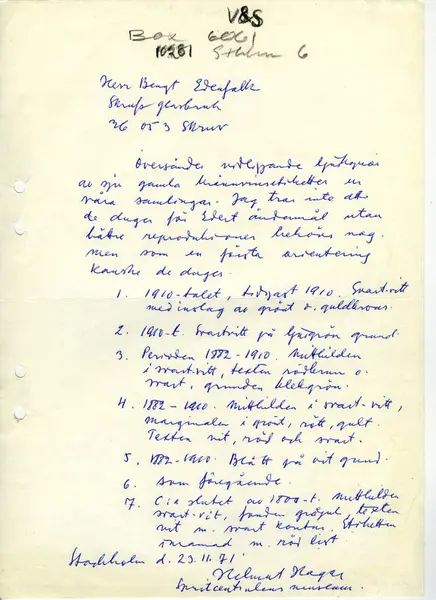 V&S
Box 6061
10231 Sthlm 6
Herr Bengt Edenfalk
Skrufs glasbruk
36 053 Skruv
Översändes vidliggande ljuskopior
av sju gamla brännvinsetiketter ur
våra samlingar. Jag tror inte att
de duger för Edert ändamål utan
bättre reproduktioner behövs nog.
men som en första orientering
kanske de duger.
1. 1910-talet, tidigast 1910. Svartvitt
med inslag av grönt o. guldbrons.
2. 1910-t. Svartvitt på ljusgrön grund.
3. Perioden 1882-1910. Mittbilden
i svart-vitt, texten rödbrun o.
svart, grunden blekgrön.
4. 1882-1910. Mittbilden i svart-vitt,
marginalen i grönt, rött, gult.
Texten vit, röd och svart.
5. 1882-1910. Blått på vit grund.
6. som föregående.
7. C:a slutet av 1800-t. Mittbilden
svart-vit, fonden grågul, texten
vit m. svart kontur. Etiketten
inramad m. röd list
Stockholm d. 23.11.71
Helmut Hagar
Spritcentralens museum.